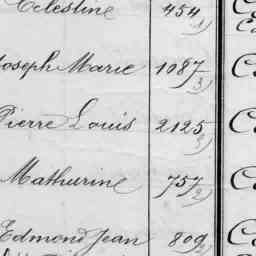 Celestine 454
1)
Joseph Marie 1087
3)
Pierre Louis 2125
3)
Mathurine 757
2)
Edmond Jean 809
2)